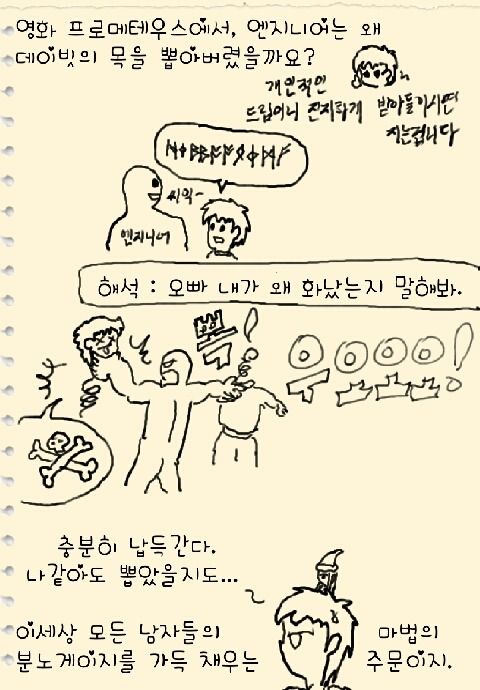 영화 프로메테우스에서, 엔지니어는 왜
데이빗의 목을 뽑아버렸을까요?
개인적인
드립이니 진지하게 받아들이시면
지는겁니다
씨익~
엔지니어
해석 : 오빠 내가 왜 화났는지 말해봐.
뽥!
으아아아!
충분히 납득간다.
나같아도 뽑았을지도...
이세상 모든 남자들의 마법의
분노게이지를 가득 채우는 주문이지.